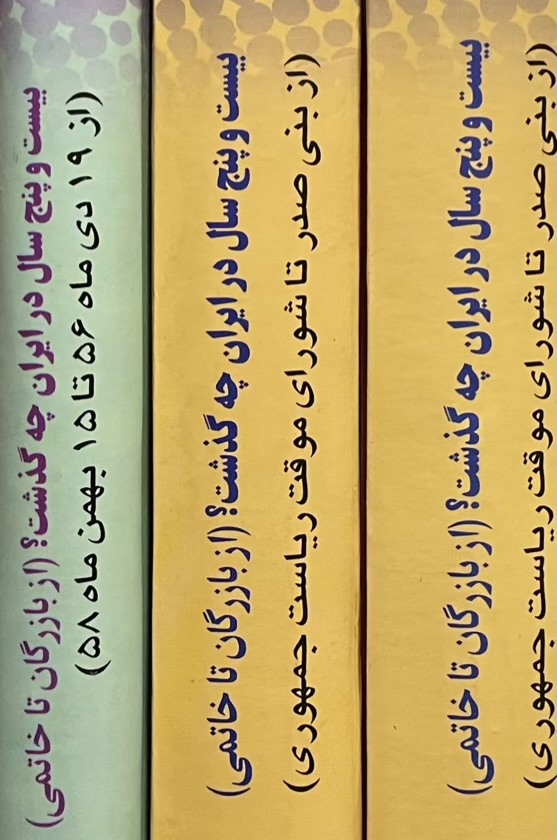 بیست و پنج سال در ایران چه گذشت؟ (از بازرگان تا خاتمی)
(از ۱۹ دی ماه ۵۶ تا ۱۵ بهمن ماه ۵۸)
بیست و پنج سال در ایران چه گذشت؟ (از بازرگان تا خاتمی)
(از بنی صدر تا شورای موقت ریاست جمهوری)
بیست و پنج سال در ایران چه گذشت؟ (از بازرگان تا خاتمی)
(از بنی صدر تا شورای موقت ریاست جمهوری)